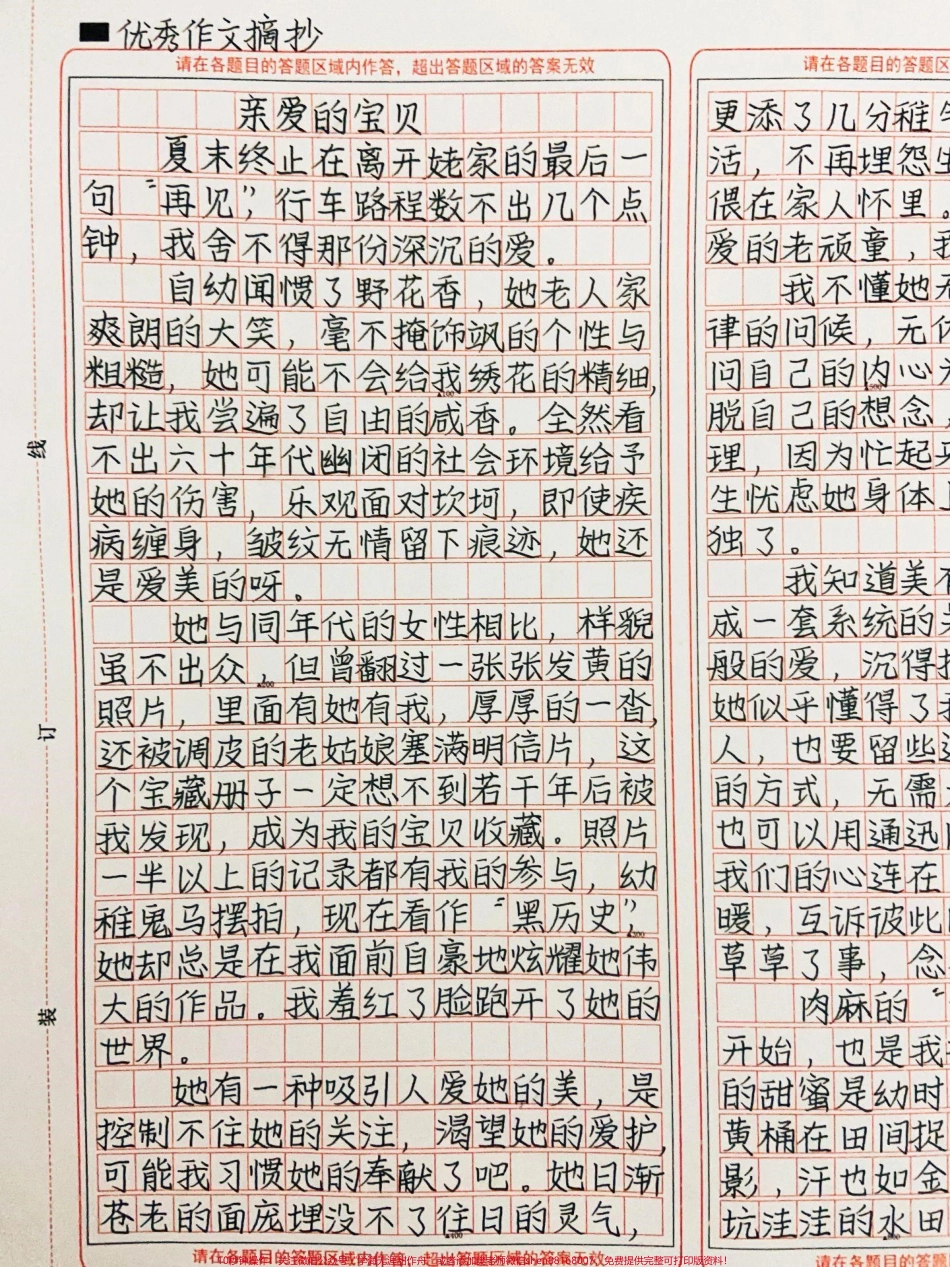 优秀作文摘抄
请在各题目的答题区域内作答，超出答题区域的答案无效
亲爱的宝贝
夏末终止在离开姥家的最后一
句“再见”，行车路程数不出几个点
钟，我舍不得那份深沉的爱。
自幼闻惯了野花香，她老人家
爽朗的大笑，毫不掩饰飒的个性与
粗糙，她可能不会给我绣花的精细，
却让我尝遍了自由的咸香。全然看
不出六十年代幽闭的社会环境给予
她的伤害，乐观面对坎坷，即使疾
病缠身，皱纹无情留下痕迹，她还
是爱美的呀。
她与同年代的女性相比，样貌
虽不出众，但曾翻过一张张发黄的
照片，里面有她有我，厚厚的一沓，
还被调皮的老姑娘塞满明信片，这
个宝藏册子一定想不到若干年后被
我发现，成为我的宝贝收藏。照片
一半以上的记录都有我的参与，幼
稚鬼马摆拍，现在看作“黑历史”
她却总是在我面前自豪地炫耀她伟
大的作品。我羞红了脸跑开了她的
世界。
她有一种吸引人爱她的美，是
控制不住她的关注，渴望她的爱护，
可能我习惯她的奉献了吧。她日渐
苍老的面庞埋没不了往日的灵气，
请在各题目的答题区域内作答，超出答题区域的答案无效
请在各题目的答题区
更添了几分稚
活，不再埋怨
偎在家人怀里。
爱的老顽童，
我不懂她
律的问候，无
问自己的内心
脱自己的想念，
理，因为忙起
生忧虑她身体
独了。
我知道美
成一套系统的
般的爱，沉得
她似乎懂得了
人，也要留些
的方式，无需
也可以用通迅
我们的心连在
暖，互诉彼此
草草了事，念
肉麻的“
开始，也是我
的甜蜜是幼时
黄桶在田间捉
影，汗也如金
坑洼洼的水田
请在各题目的答题
线
订
装